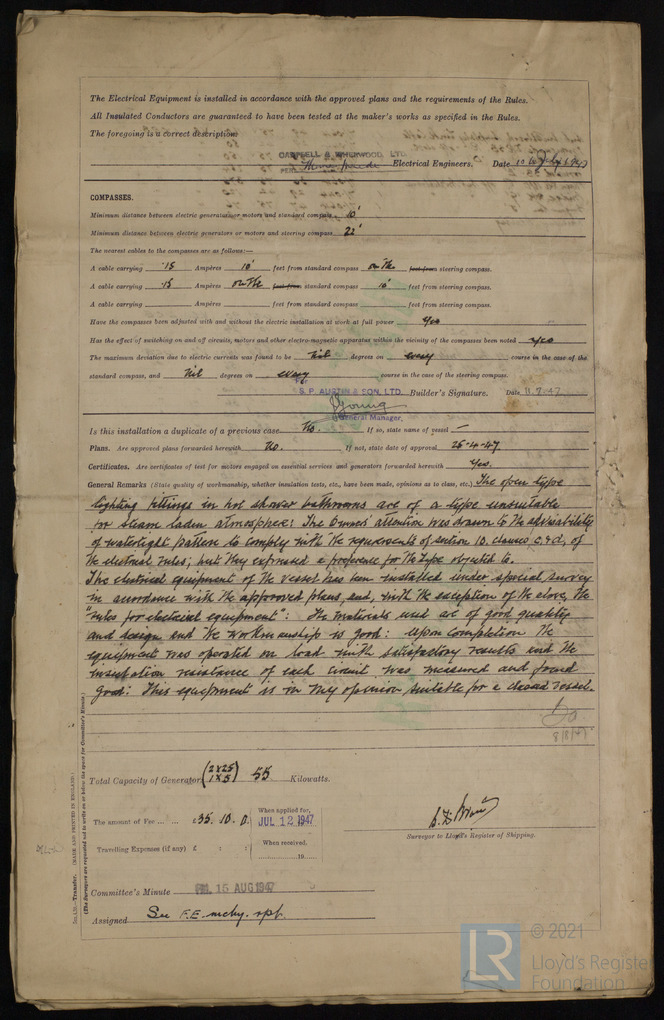 The Electrical Equipment is installed in accordance with the approved plans and the requirements of the Rules.
All Insulated Conductors are guaranteed to have been tested at the maker's works as specified in the Rules.
The foregoing is a correct description
CAMPBELL & ISHERWOOD, LTD.
Electrical Engineers. Date 10th July 1947
COMPASSES.
Minimum distance between electric generators or motors and standard compass 10'
Minimum distance between electric generators or motors and steering compass 22'
The nearest cables to the compasses are as follows:—
A cable carrying .15 Ampères 10' feet from standard compass on the feet from steering compass.
A cable carrying .15 Ampères on the feet from standard compass 10' feet from steering compass.
A cable carrying Ampères feet from standard compass feet from steering compass.
Have the compasses been adjusted with and without the electric installation at work at full power Yes
Has the effect of switching on and off circuits, motors and other electro-magnetic apparatus within the vicinity of the compasses been noted Yes
The maximum deviation due to electric currents was found to be Nil degrees on every course in the case of the
standard compass, and Nil degrees on every course in the case of the steering compass.
S. P. AUSTIN & SON, LTD. Builder's Signature. Date 11.7.47
Young
General Manager.
Is this installation a duplicate of a previous case No. If so, state name of vessel —
Plans. Are approved plans forwarded herewith No. If not, state date of approval 25-4-47
Certificates. Are certificates of test for motors engaged on essential services and generators forwarded herewith Yes.
General Remarks (State quality of workmanship, whether insulation tests, etc., have been made, opinions as to class, etc.) The open type
lighting fittings in hot shower bathrooms are of a type unsuitable
for steam laden atmosphere: The Owners' attention was drawn to the advisability
of watertight pattern to comply with the requirements of section 10. clauses c & d, of
the electrical rules; but they expressed a preference for the type objected to.
The electrical equipment of the vessel has been installed under special survey
in accordance with the approved plans, and, with the exception of the above, the
"rules for electrical equipment": The materials used are of good quality
and design and the workmanship is good: Upon completion the
equipment was operated on load with satisfactory results and the
insulation resistance of each circuit was measured and found
good: This equipment is in my opinion suitable for a classed vessel.
8/8/47
Total Capacity of Generators (2 x 25 1 x 5) 55 Kilowatts.
The amount of Fee ... ... £35.10.0. When applied for, JUL 12 1947
Travelling Expenses (if any) £ : : When received, 19
Surveyor to Lloyd's Register of Shipping.
Committee's Minute FRI. 15 AUG 1947
Assigned See F.E. mchy. rpt.
Transfer. (MADE AND PRINTED IN ENGLAND.)
(The Surveyors are requested not to write on or below the space for Committee's Minute.)
LR
© 2021
Lloyd's Register
Foundation